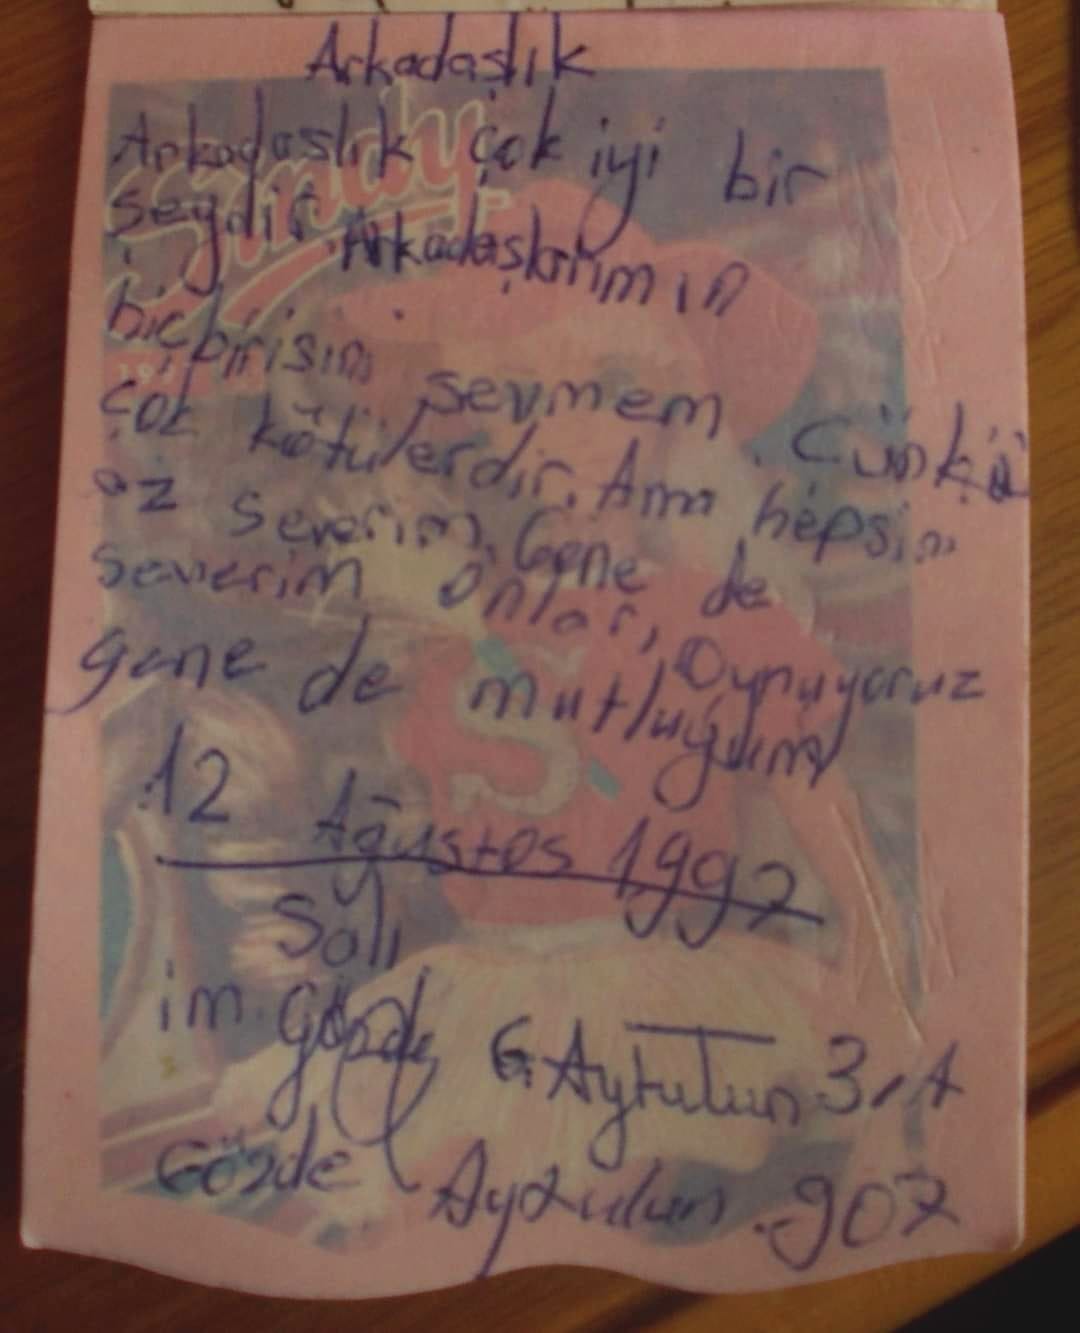 Arkadaşlık
Arkadaşlık çok iyi bir
şeydir. Arkadaşlarımın
hiçbirisini sevmem. Çünkü
çok kötülerdir. Ama hepsini
az severim. Gene de
severim onlar, Oynuyoruz
gene de mutluyum
12 Ağustos 1992
Salı
im. Gözde G. Aytulun 3/A
Gözde Aytulun 907
Sindy